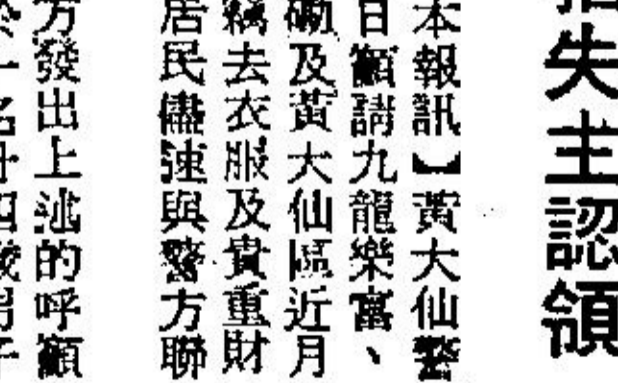 失主認領
本報訊】黃大仙警
日籲請九龍樂富、
磡及黃大仙區近月
竊去衣服及貴重財
居民儘速與警方聯
方發出上述的呼籲
一名廿四歲男子